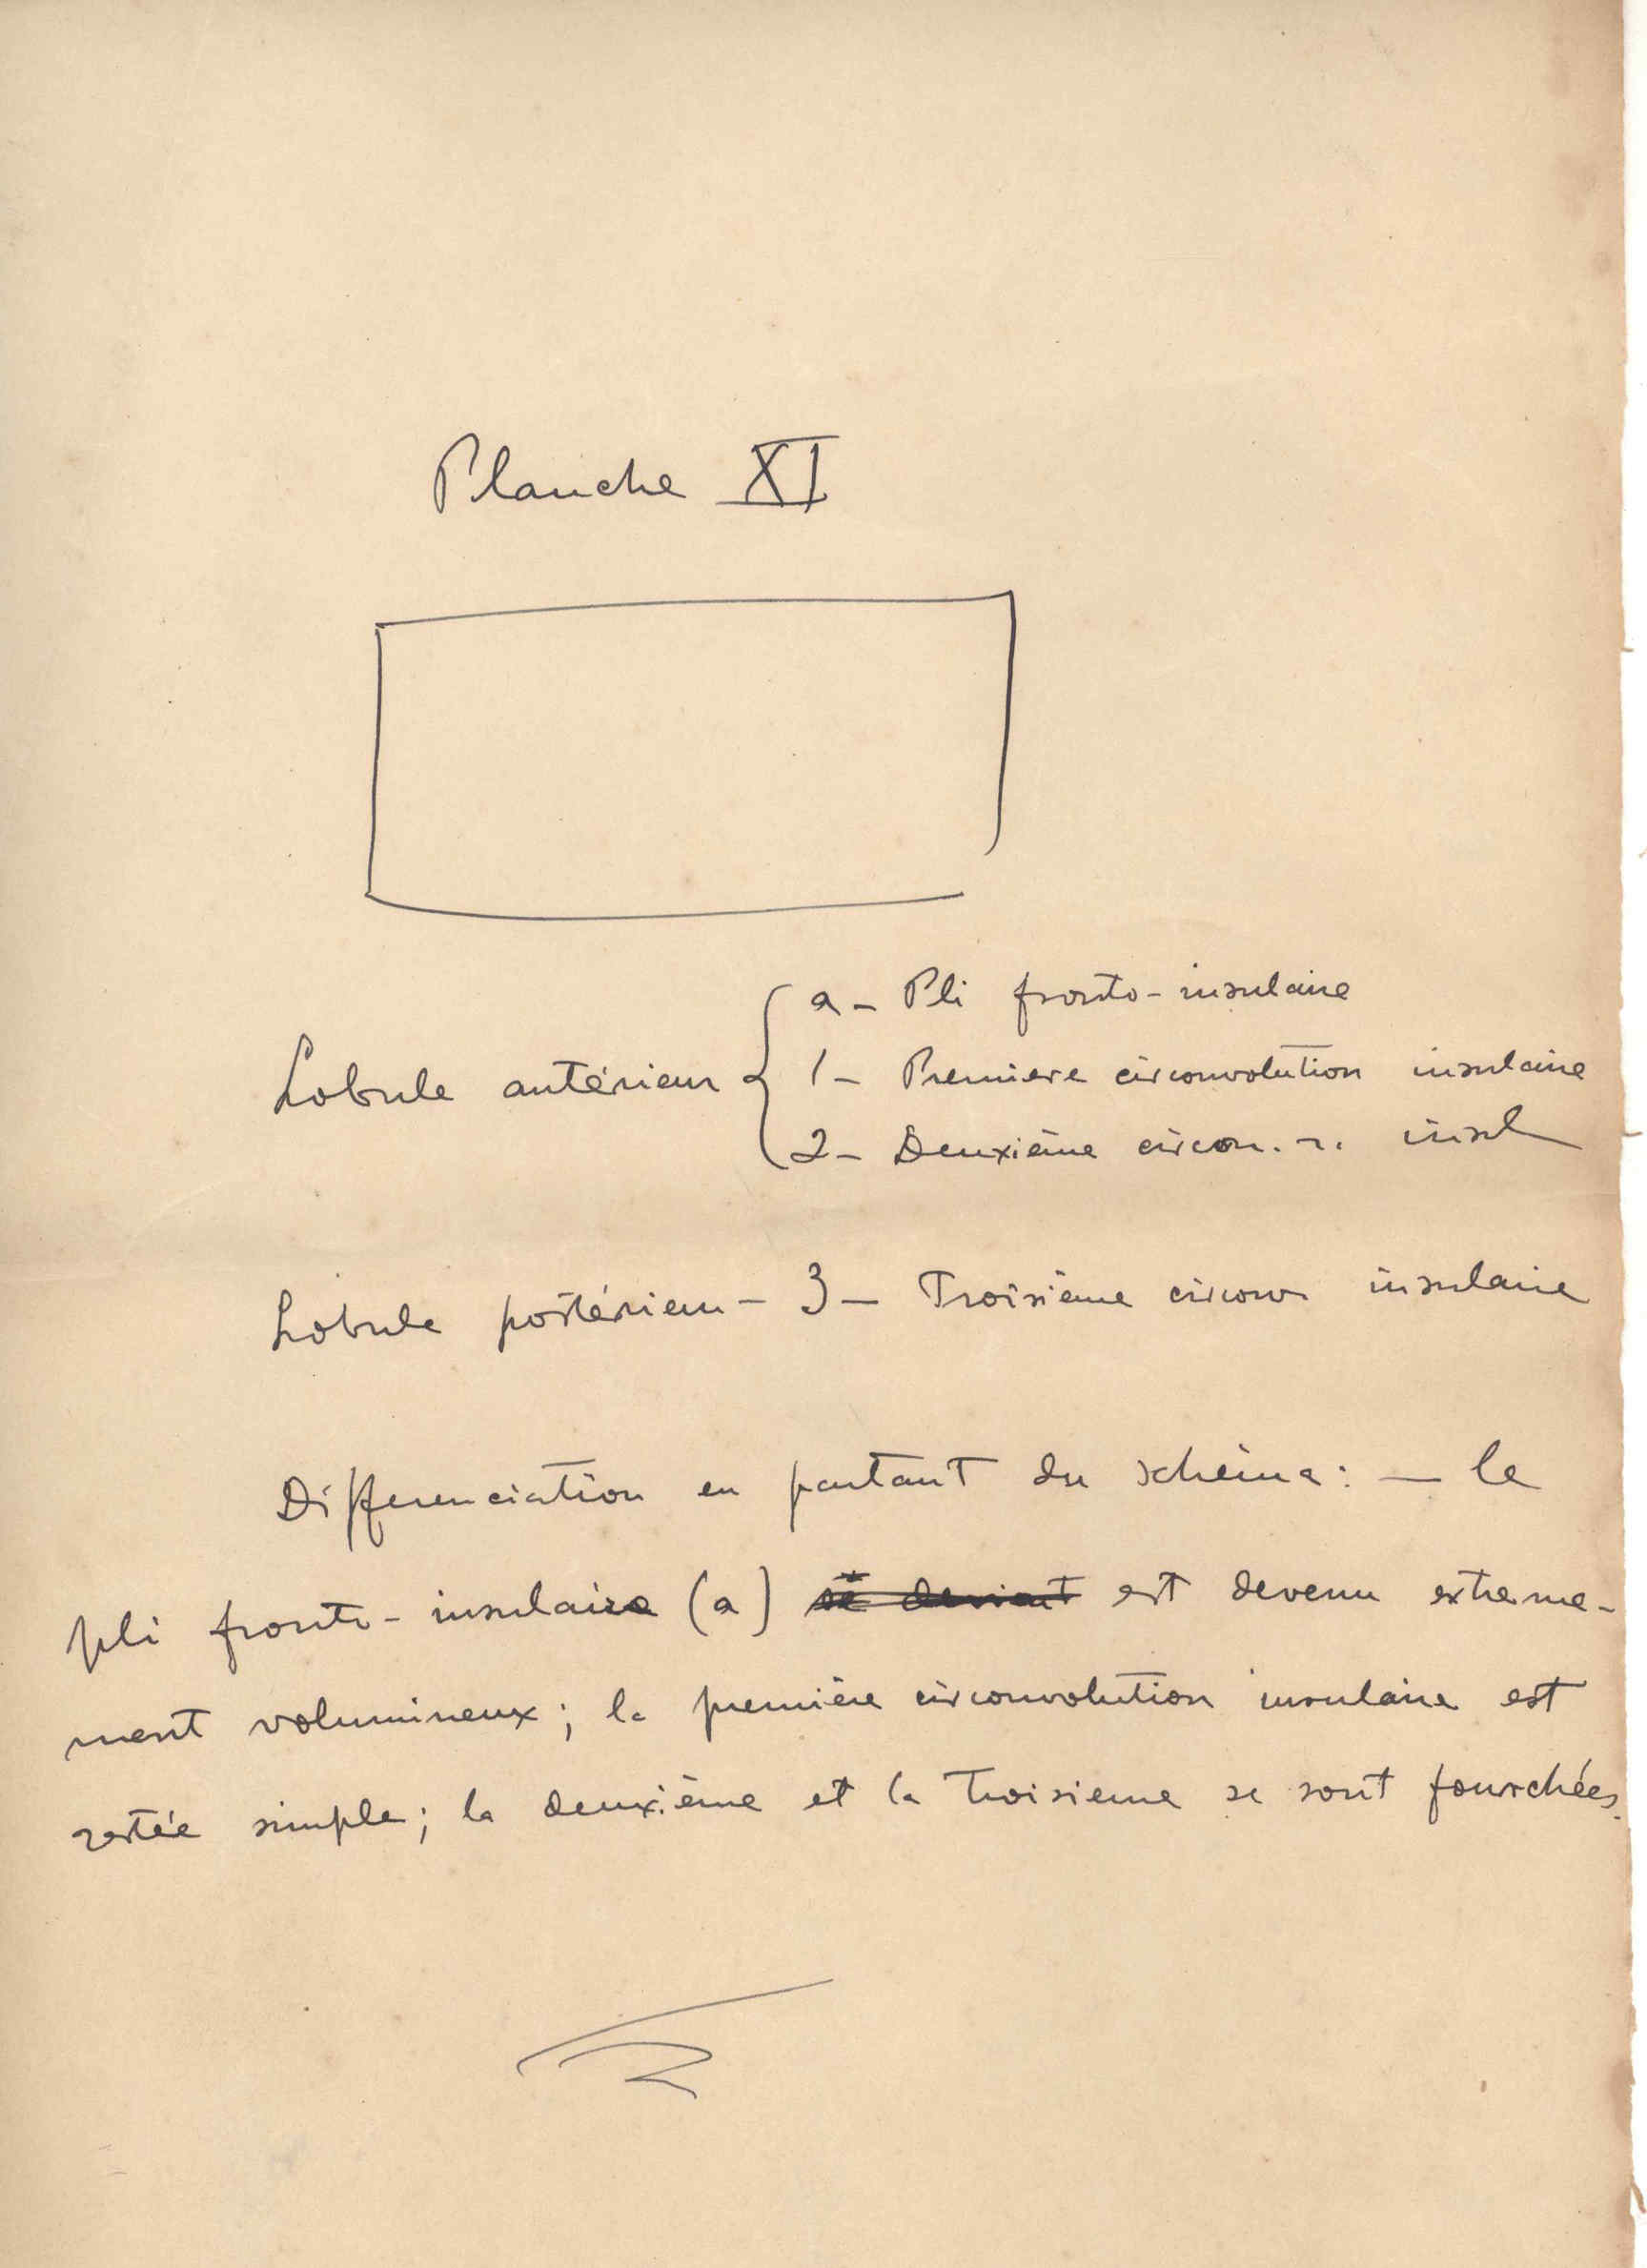 Planche XI
a - Pli fronto-insulaire
Lobule antérieur { 1 - Premiere circonvolution insulaire
2 - Deuxième circon. n. insul
Lobule postérieur - 3 - Troisième circonv insulaire
Differenciation en partant du schèma : — le
pli fronto-insulaire (a) se devient est devenu extreme-
ment volumineux ; la première circonvolution insulaire est
restée simple ; la deuxième et la troisieme se sont fourchées.